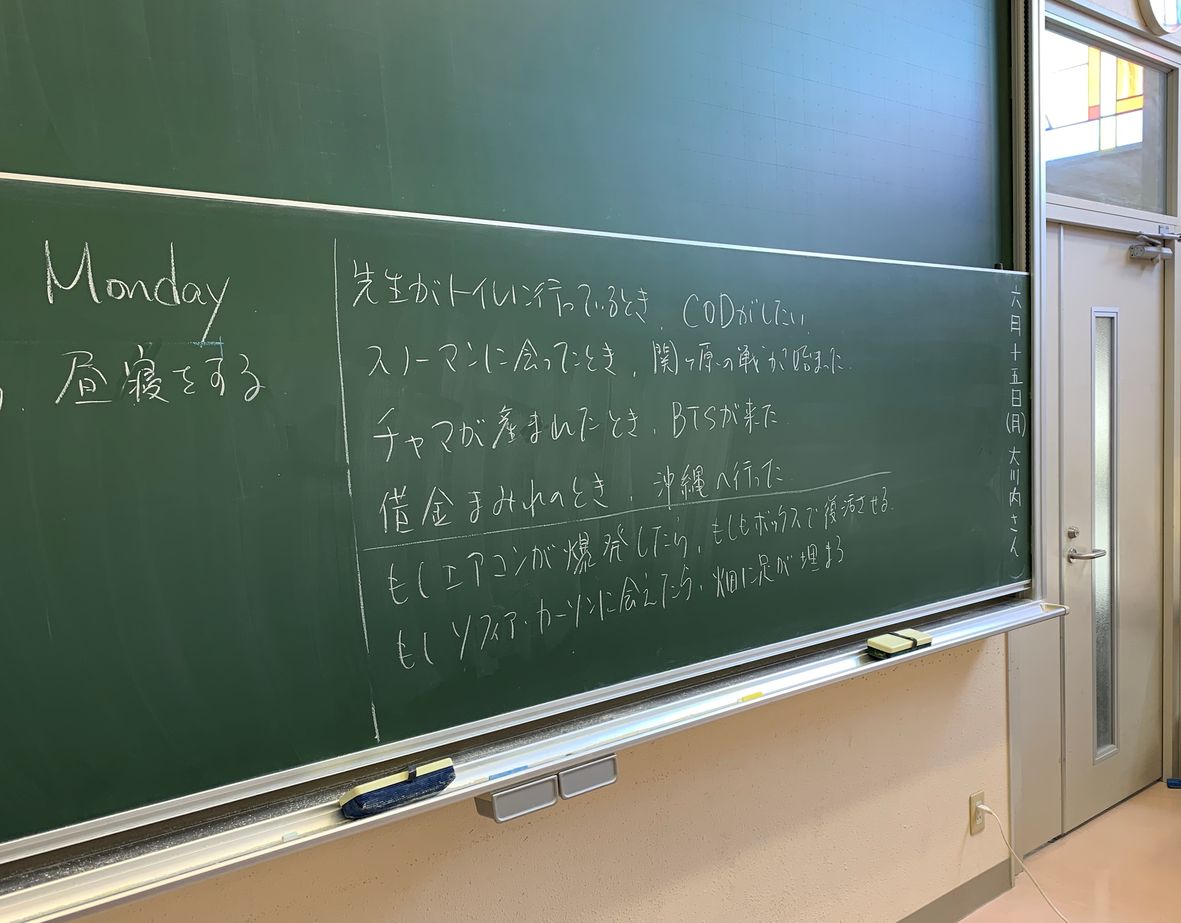 Monday
昼寝をする
先生がトイレに行っているとき、CODがしたい
スノーマンに会ったとき、関ヶ原の戦が始まった
チャマが産まれたとき、BTSが来た
借金まみれのとき、沖縄へ行った
もしエアコンが爆発したら、もしもボックスで復活させる
もしソフィア・カーソンに会えたら、畑に足が埋まる
六月十五日(月) 大川内さん